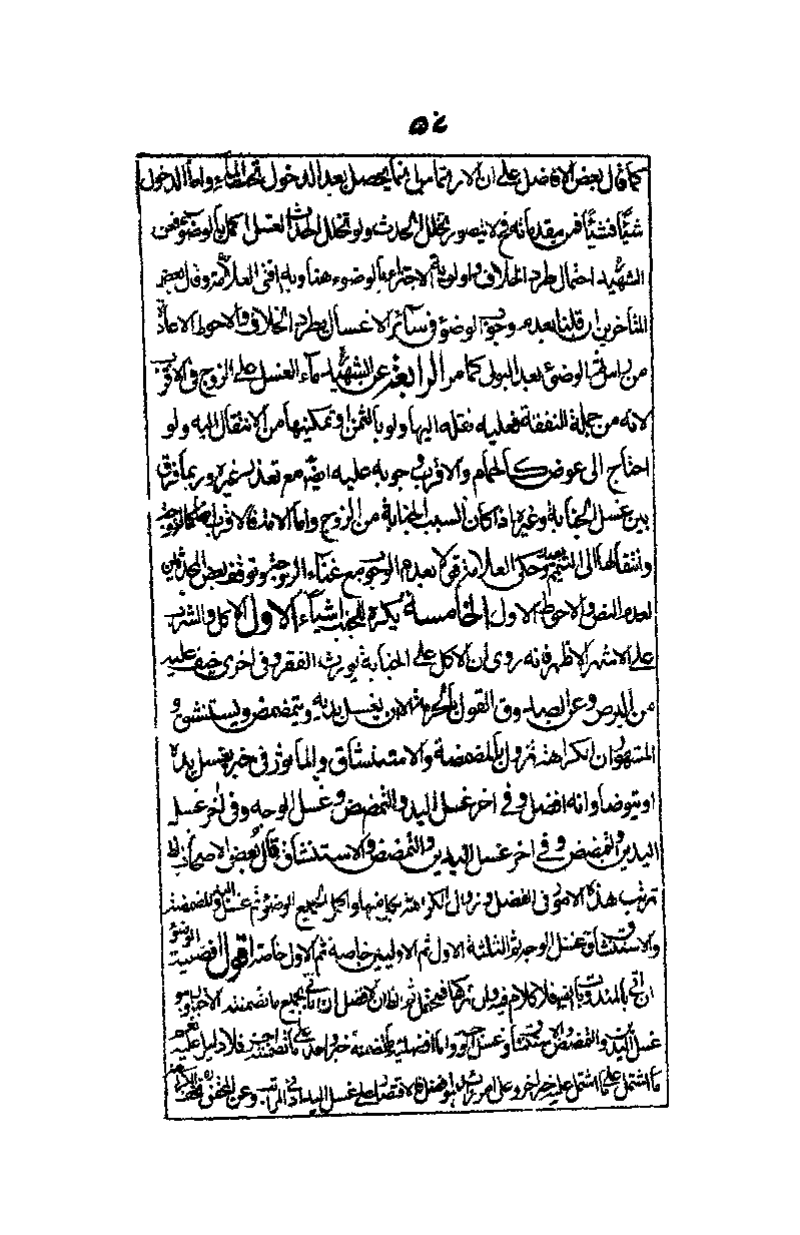 ٥٤
كما قال بعض الافاضل على ان الارتماس انما يحصل بعد الدخول تحت الماء واما الدخول
شيئا فشيئا فمن مقدماته فلا يتصور تخلل الحدث ولو تخلل الحدث الغسل اكمل بالوضوء وعن
الشهيد احتمال طرد الخلاف واولوية الاجتزاء بالوضوء هنا وبه افتى العلامة وقال بعض
المتأخرين ان قلنا بعدم وجوب الوضوء في سائر الاغسال يطرد الخلاف والاحوط الاعادة
من راس ثم الوضوء بعد البول كما مر الرابعة عن الشهيد ماء الغسل على الزوج في الاقرب
لانه من جملة النفقة فعليه نقله اليها ولو بالثمن او تمكينها من الانتقال اليه ولو
احتاج الى عوض كالحمام والاقرب وجوبه عليه ايضا مع تعذر غيره وربما فرق
بين غسل الجنابة وغيره اذا كان السبب الجنابة من الزوج واما الامة فالاقرب انها كالزوجة
وانتقالها الى التيمم بعيد وحكى العلامة قولا بعدم الوجوب مع غناء الزوجة وتوقف بعض المحدثين
لعدم النص والاحوط الاول الخامسة يكره للجنب اشياء الاول الاكل والشرب
على الاشهر الاظهر فانه روى ان الاكل على الجنابة يورث الفقر وفي اخرى خيف عليه
من البرص وعن الصدوق القول بالحرمة الا ان يغسل يديه ويتمضمض ويستنشق و
المشهور ان الكراهة تزول بالمضمضة والاستنشاق والماثور في خبر يغسل يده
او يتوضا وانه افضل وفي اخر غسل اليد والتمضمض وغسل الوجه وفي اخر غسل
اليدين والتمضمض وفي اخر غسل اليدين والتمضمض والاستنشاق قال بعض الاصحاب
ترتيب هذه الامور في الفضل وزوال الكراهة بكل منها واكمل الجميع الوضوء ثم غسل اليد والمضمضة
والاستنشاق وغسل الوجه ثم الثلثة الاول ثم الاوليين خاصة ثم الاول خاصة اقول افضلية الوضوء
ان اتى بالمندوبات فلا كلام فيه وان تركها فيحتمل ثم ان الافضل ان ياتي بجميع ما تضمنته الاخبار وهو
غسل اليدين والتمضمض والاستنشاق وغسل الوجه واما افضلية ما تضمنه خبر واحد على ما تضمنه اخر فلا دليل عليه نعم
ما اشتمل على ما اشتمل عليه خبر اخر وعلى امر زائد فهو افضل فالاقتصار على غسل اليد ادنى المراتب وعن المحقق تخفف الكراهة